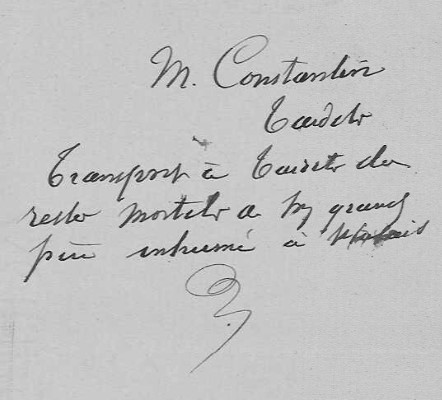 M. Constantin
Tardets
Transport à Tardets des
restes mortels de son grand
père inhumé à